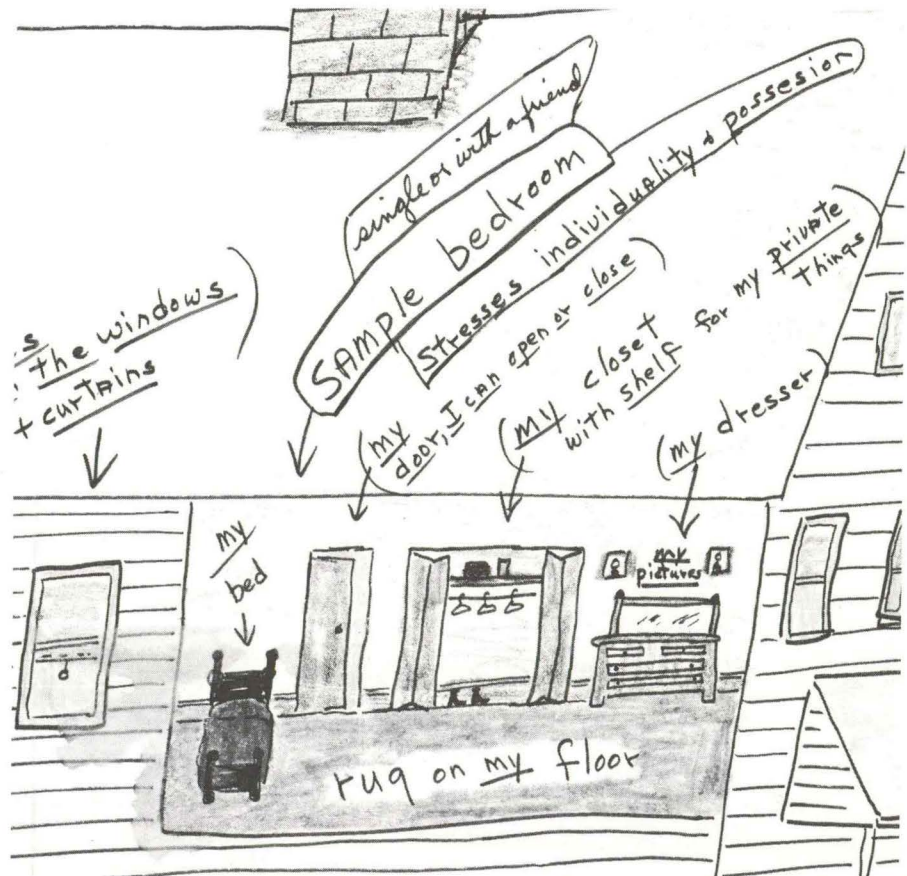 single or with a friend
SAMple bedroom
Stresses individuality & possesion
s
the windows
+ curtains
(my
door, I can open or close)
(my closet
with shelf for my private
things)
(my dresser)
my
bed
my
pictures
rug on my floor